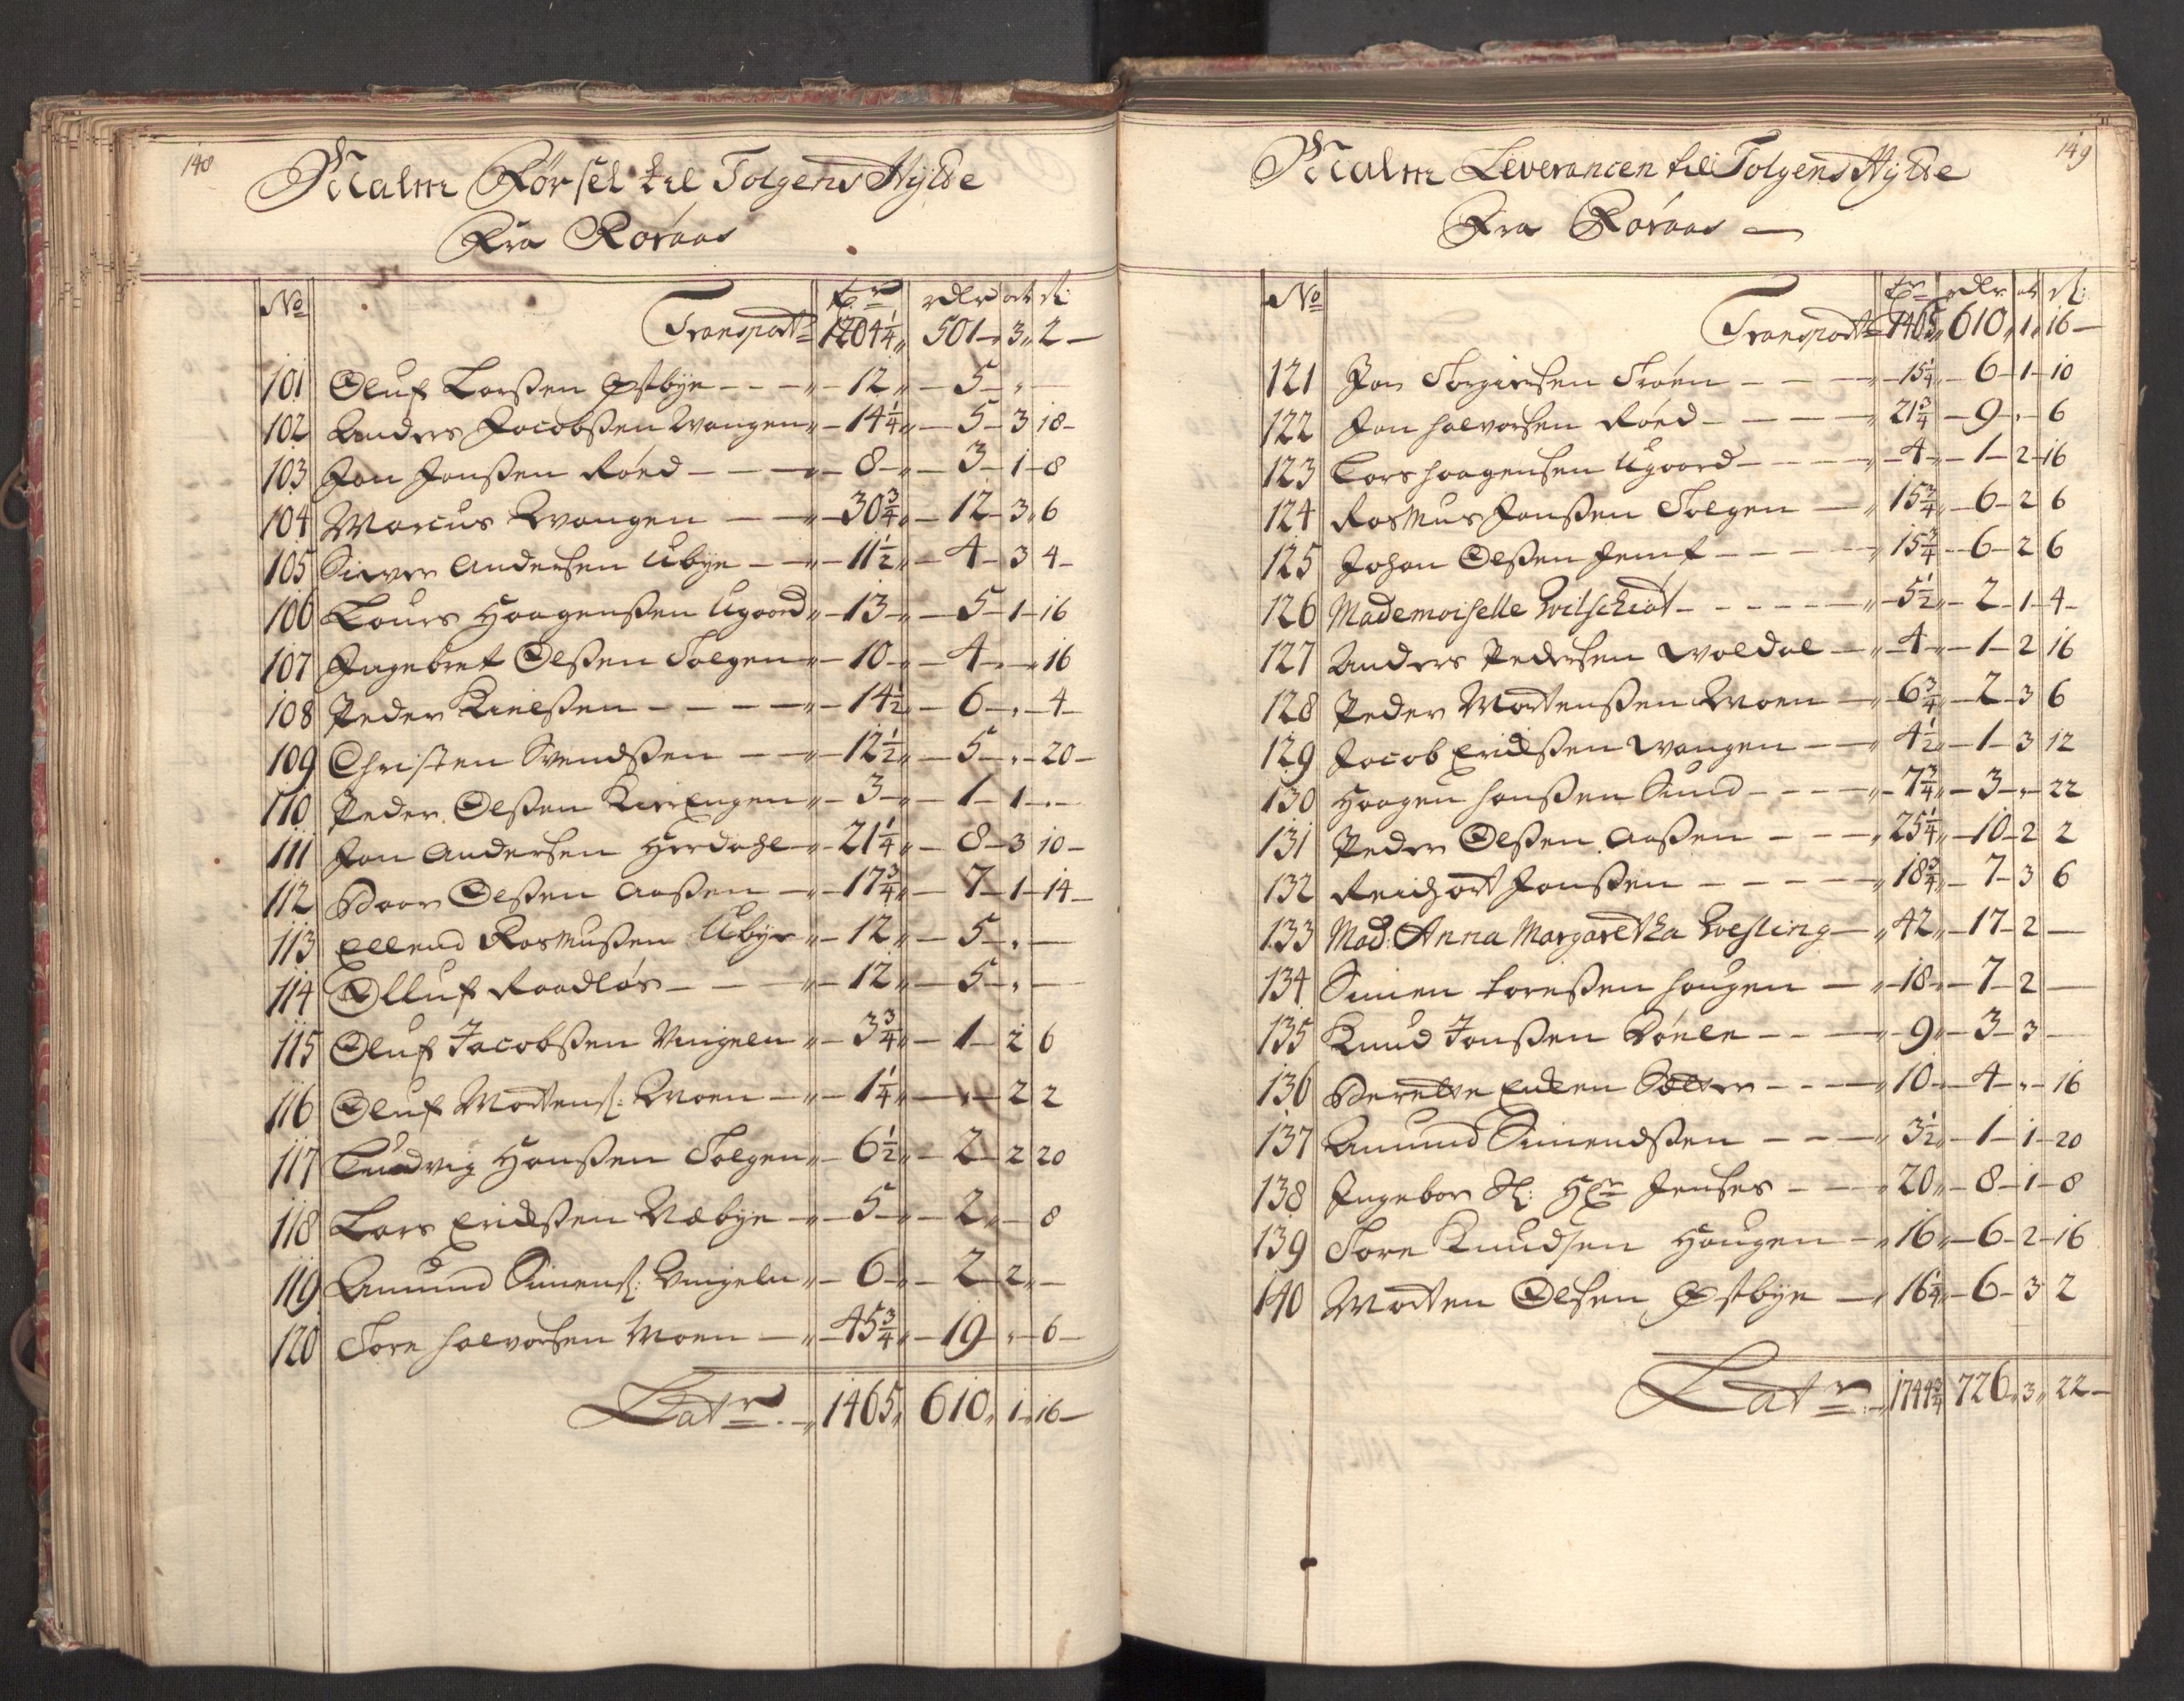 148
Malm Førsel til Tolgens Hytte
Fra Røraas
No Tr rdlr ort sl:
Transport 1204 1/4 501 3 2
101 Oluf Larsßen Østbye 12 5
102 Anders Jacobsßen Wangen 14 1/4 5 3 18
103 Jon Jonsßen Røed 8 3 1 8
104 Marcus Wangen 30 3/4 12 3 6
105 Siver Andersen Ubye 11 1/2 4 3 4
106 Laurs Haagensßen Ugaard 13 5 1 16
107 Ingebret Olßen Tolgen 10 4 16
108 Peder Kielßen 14 1/2 6 4
109 Christen Svendßen 12 1/2 5 20
110 Peder Olßen Kirengen 3 1 1
111 Jon Andersen Herdahl 21 1/4 8 3 10
112 Baar Olßen Aaßen 17 3/4 7 1 14
113 Ellend Rasmußen Ubye 12 5
114 Olluf Raadløs 12 5
115 Oluf Jacobßen Vingeln 3 3/4 1 2 6
116 Oluf Mortens: Moen 1 1/4 2 2
117 Ludvig Hansßen Tolgen 6 1/2 2 2 20
118 Lars Erichßen Næbye 5 2 8
119 Amund Simens: Vingeln 6 2 2
120 Tore Halvorsen Moen 45 3/4 19 6
Latr 1465 610 1 16
149
Malm Leverancen til Tolgens Hytte
Fra Røraas
No Tr rdlr ort sl:
Transport 1465 610 1 16
121 Jon Torgiersen Trøen 15 1/4 6 1 10
122 Jon Halvorsen Røed 21 3/4 9 6
123 Lars Haagensen Ugaard 4 1 2 16
124 Rasmus Jonßen Tolgen 15 3/4 6 2 6
125 Johan Olßen Jemt 15 3/4 6 2 6
126 Mademoiselle 5 1/2 2 1 4
127 Anders Pedersen Woldal 4 1 2 16
128 Peder Mortensßen Moen 6 3/4 2 3 6
129 Jacob Erichßen Wangen 4 1/2 1 3 12
130 Haagen Hansßen Sund 7 3/4 3 22
131 Peder Olßen Aaßen 25 1/4 10 2 2
132 Reichart Jonßen 18 3/4 7 3 6
133 Mad: Anna Margaretha Wesling 42 17 2
134 Simen Toreßen Hougen 18 7 2
135 Knud Jonßen 9 3 3
136 Berette 10 4 16
137 Amund Simendßen 3 1/2 1 1 20
138 Ingebor Sl: Hr Jenses 20 8 1 8
139 Tore Knudsen Hougen 16 6 2 16
140 Morten Olsen Østbye 16 1/4 6 3 2
Latr 1744 3/4 726 3 22